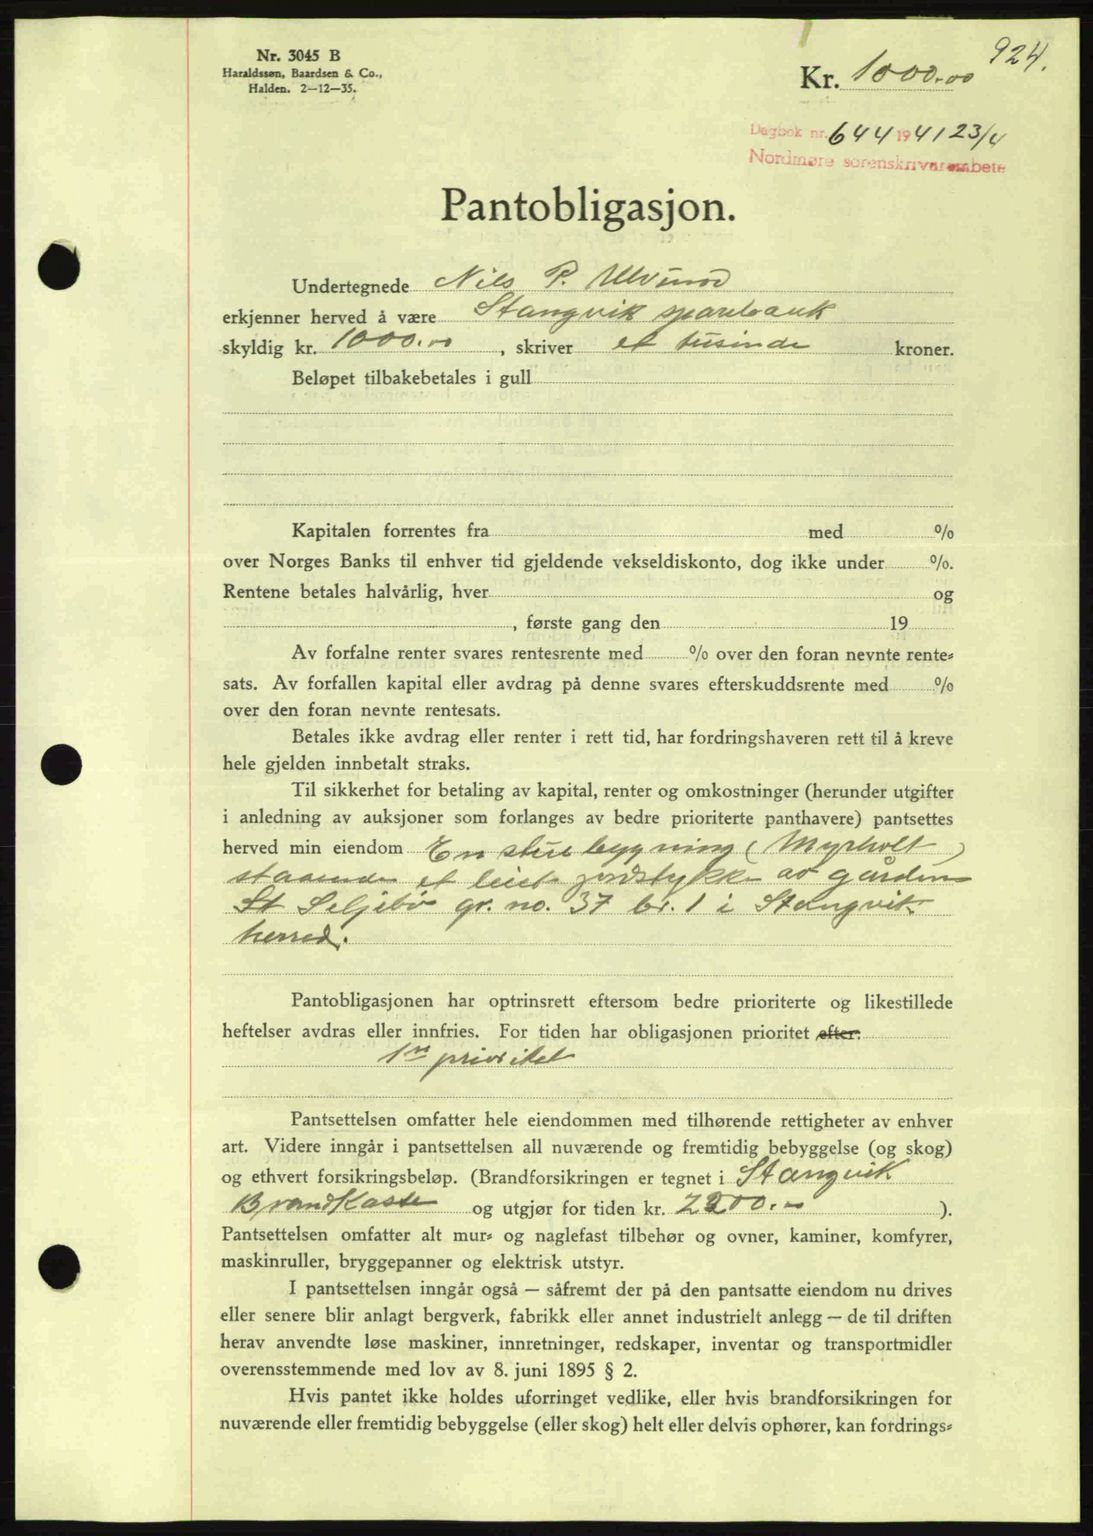 924.
Nr. 3045 B
Haraldssøn, Baardsen & Co.,
Halden. 2—12—35.
Kr. 1000.00
Dagbok nr. 644 1941 23/4
Nordmøre sorenskrivarembete
Pantobligasjon.
Undertegnede Nils P. Ulvund
erkjenner herved å være Stangvik sparebank
skyldig kr. 1000.00, skriver et tusinde kroner.
Beløpet tilbakebetales i gull
Kapitalen forrentes fra med %
over Norges Banks til enhver tid gjeldende vekseldiskonto, dog ikke under %.
Rentene betales halvårlig, hver og
, første gang den 19
Av forfalne renter svares rentesrente med % over den foran nevnte rente-
sats. Av forfallen kapital eller avdrag på denne svares efterskuddsrente med %
over den foran nevnte rentesats.
Betales ikke avdrag eller renter i rett tid, har fordringshaveren rett til å kreve
hele gjelden innbetalt straks.
Til sikkerhet for betaling av kapital, renter og omkostninger (herunder utgifter
i anledning av auksjoner som forlanges av bedre prioriterte panthavere) pantsettes
herved min eiendom En stue bygning (Myrholt)
staaende et leiet jordstykke av gården
St Seljebø gr. no. 37 br. 1 i Stangvik
herred.
Pantobligasjonen har optrinsrett eftersom bedre prioriterte og likestillede
heftelser avdras eller innfries. For tiden har obligasjonen prioritet efter:
1ste prioritet
Pantsettelsen omfatter hele eiendommen med tilhørende rettigheter av enhver
art. Videre inngår i pantsettelsen all nuværende og fremtidig bebyggelse (og skog)
og ethvert forsikringsbeløp. (Brandforsikringen er tegnet i Stangvik
Brandkasse og utgjør for tiden kr. 2200.00 ).
Pantsettelsen omfatter alt mur- og naglefast tilbehør og ovner, kaminer, komfyrer,
maskinruller, bryggepanner og elektrisk utstyr.
I pantsettelsen inngår også — såfremt der på den pantsatte eiendom nu drives
eller senere blir anlagt bergverk, fabrikk eller annet industrielt anlegg — de til driften
herav anvendte løse maskiner, innretninger, redskaper, inventar og transportmidler
overensstemmende med lov av 8. juni 1895 § 2.
Hvis pantet ikke holdes uforringet vedlike, eller hvis brandforsikringen for
nuværende eller fremtidig bebyggelse (eller skog) helt eller delvis ophører, kan fordrings-